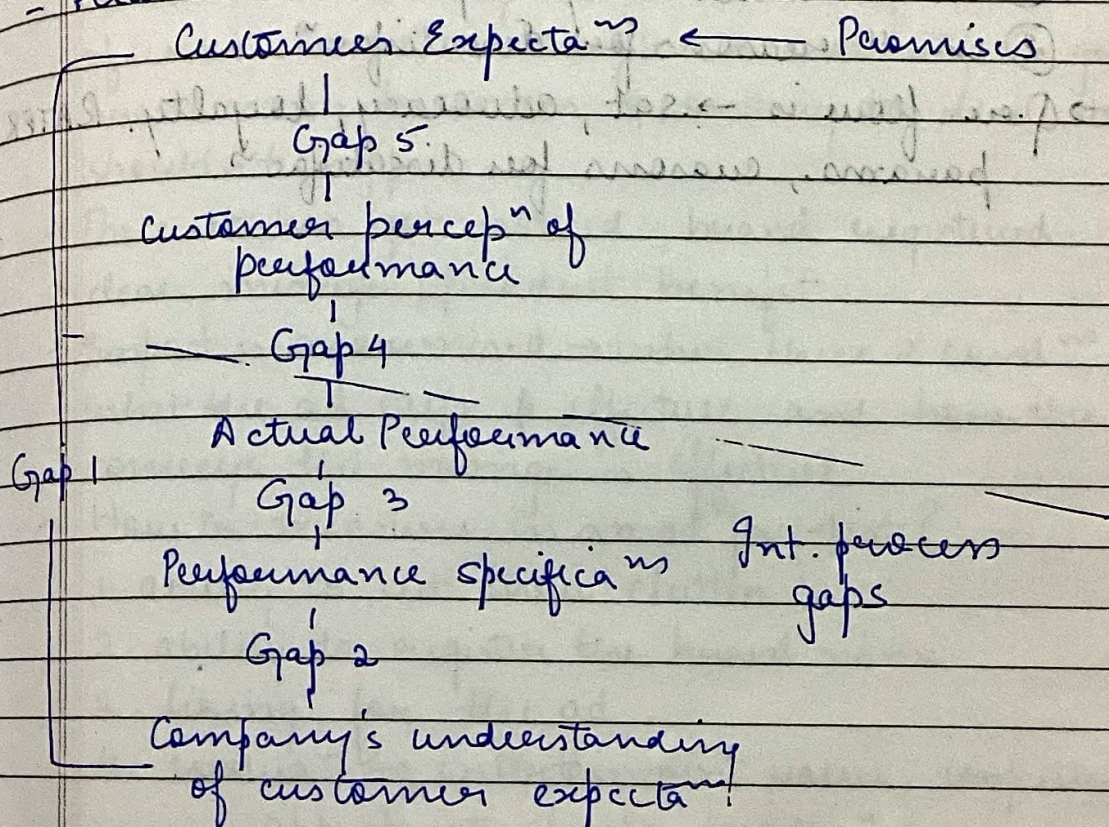 Customers Expectaⁿˢ ← Promises
Gap 5
Customer percepⁿ of
performance
Gap 4
Actual Performance
Gap 1
Gap 3
Performance specificaⁿˢ
Int. process
gaps
Gap 2
Company's understanding
of customer expectaⁿˢ